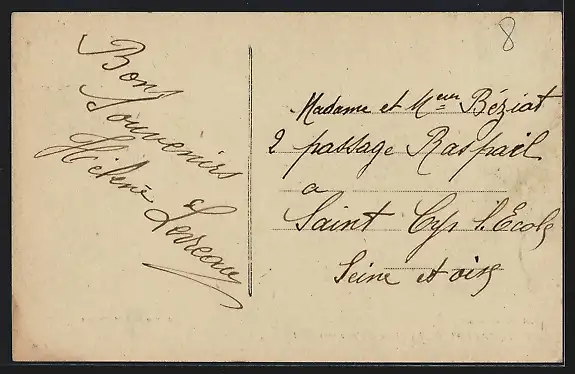 8
Bons
Souvenirs
Hélène
Madame et Meur Béziat
2 passage Raspail
a
Saint Cyr l'Ecole
Seine et oise